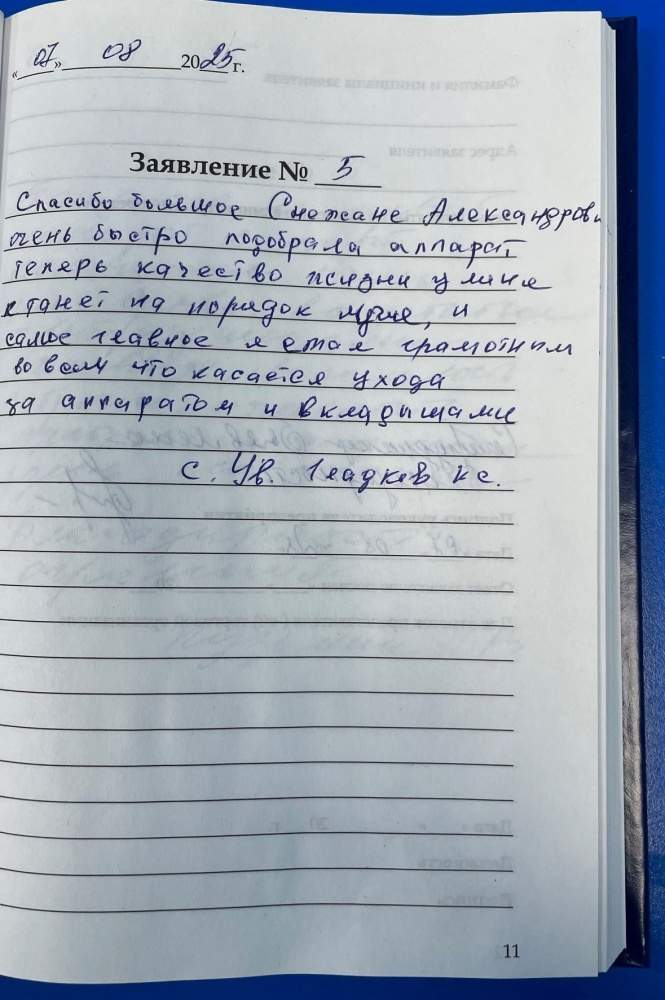 « 07 » 08 2025 г.
Заявление № 5
Спасибо большое Снежане Александровн
очень быстро подобрала аппарат
теперь качество жизни у меня
станет на порядок лучше, и
самое главное я стал грамотным
во всем что касается ухода
за аппаратом и вкладышами
С. Ув. Гладков К С.
11